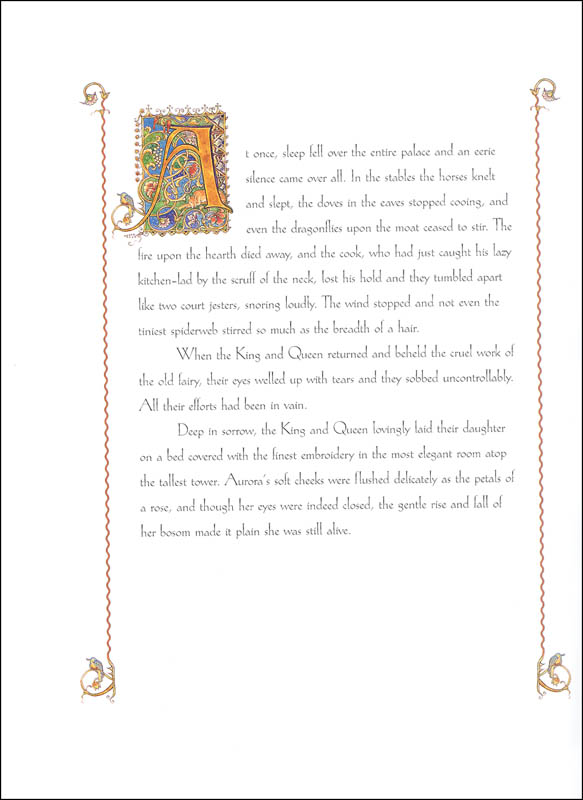 At once, sleep fell over the entire palace and an eerie
silence came over all. In the stables the horses knelt
and slept, the doves in the eaves stopped cooing, and
even the dragonflies upon the moat ceased to stir. The
fire upon the hearth died away, and the cook, who had just caught his lazy
kitchen-lad by the scruff of the neck, lost his hold and they tumbled apart
like two court jesters, snoring loudly. The wind stopped and not even the
tiniest spiderweb stirred so much as the breadth of a hair.
When the King and Queen returned and beheld the cruel work of
the old fairy, their eyes welled up with tears and they sobbed uncontrollably.
All their efforts had been in vain.
Deep in sorrow, the King and Queen lovingly laid their daughter
on a bed covered with the finest embroidery in the most elegant room atop
the tallest tower. Aurora's soft cheeks were flushed delicately as the petals of
a rose, and though her eyes were indeed closed, the gentle rise and fall of
her bosom made it plain she was still alive.